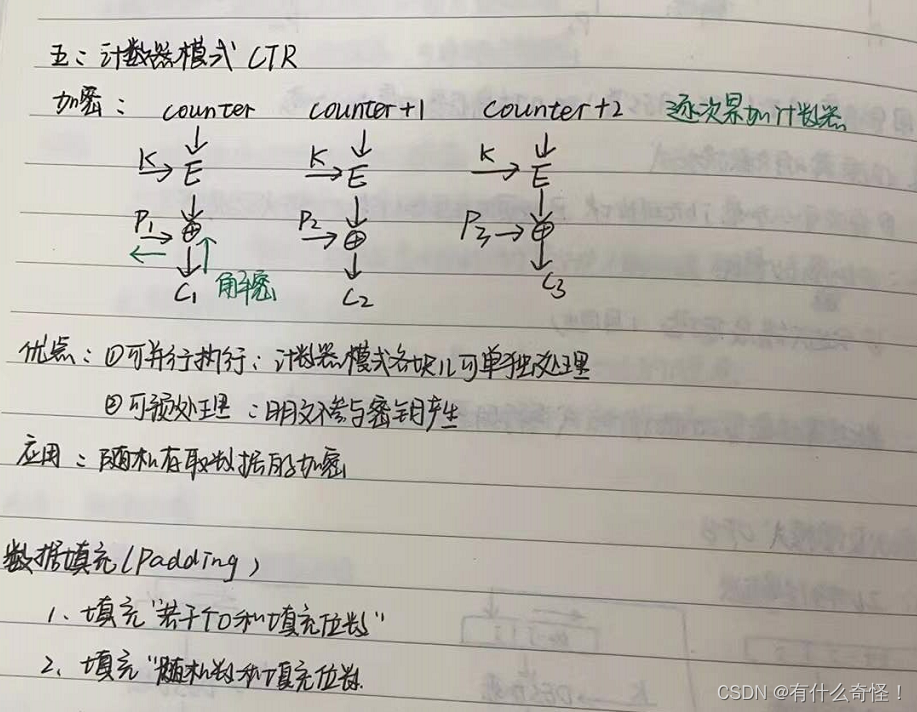 五：计数器模式 CTR
加密： counter counter+1 counter+2 逐次累加计数器
K E K E K E
P1 ⊕ P2 ⊕ P3 ⊕
C1 解密 C2 C3
优点：①可并行执行：计数器模式各块儿可单独处理
②可预处理：明文不参与密钥产生
应用：随机存取数据的加密
数据填充(Padding)
1、填充"若干个0和填充位数"
2、填充"随机数和填充位数
CSDN @有什么奇怪！